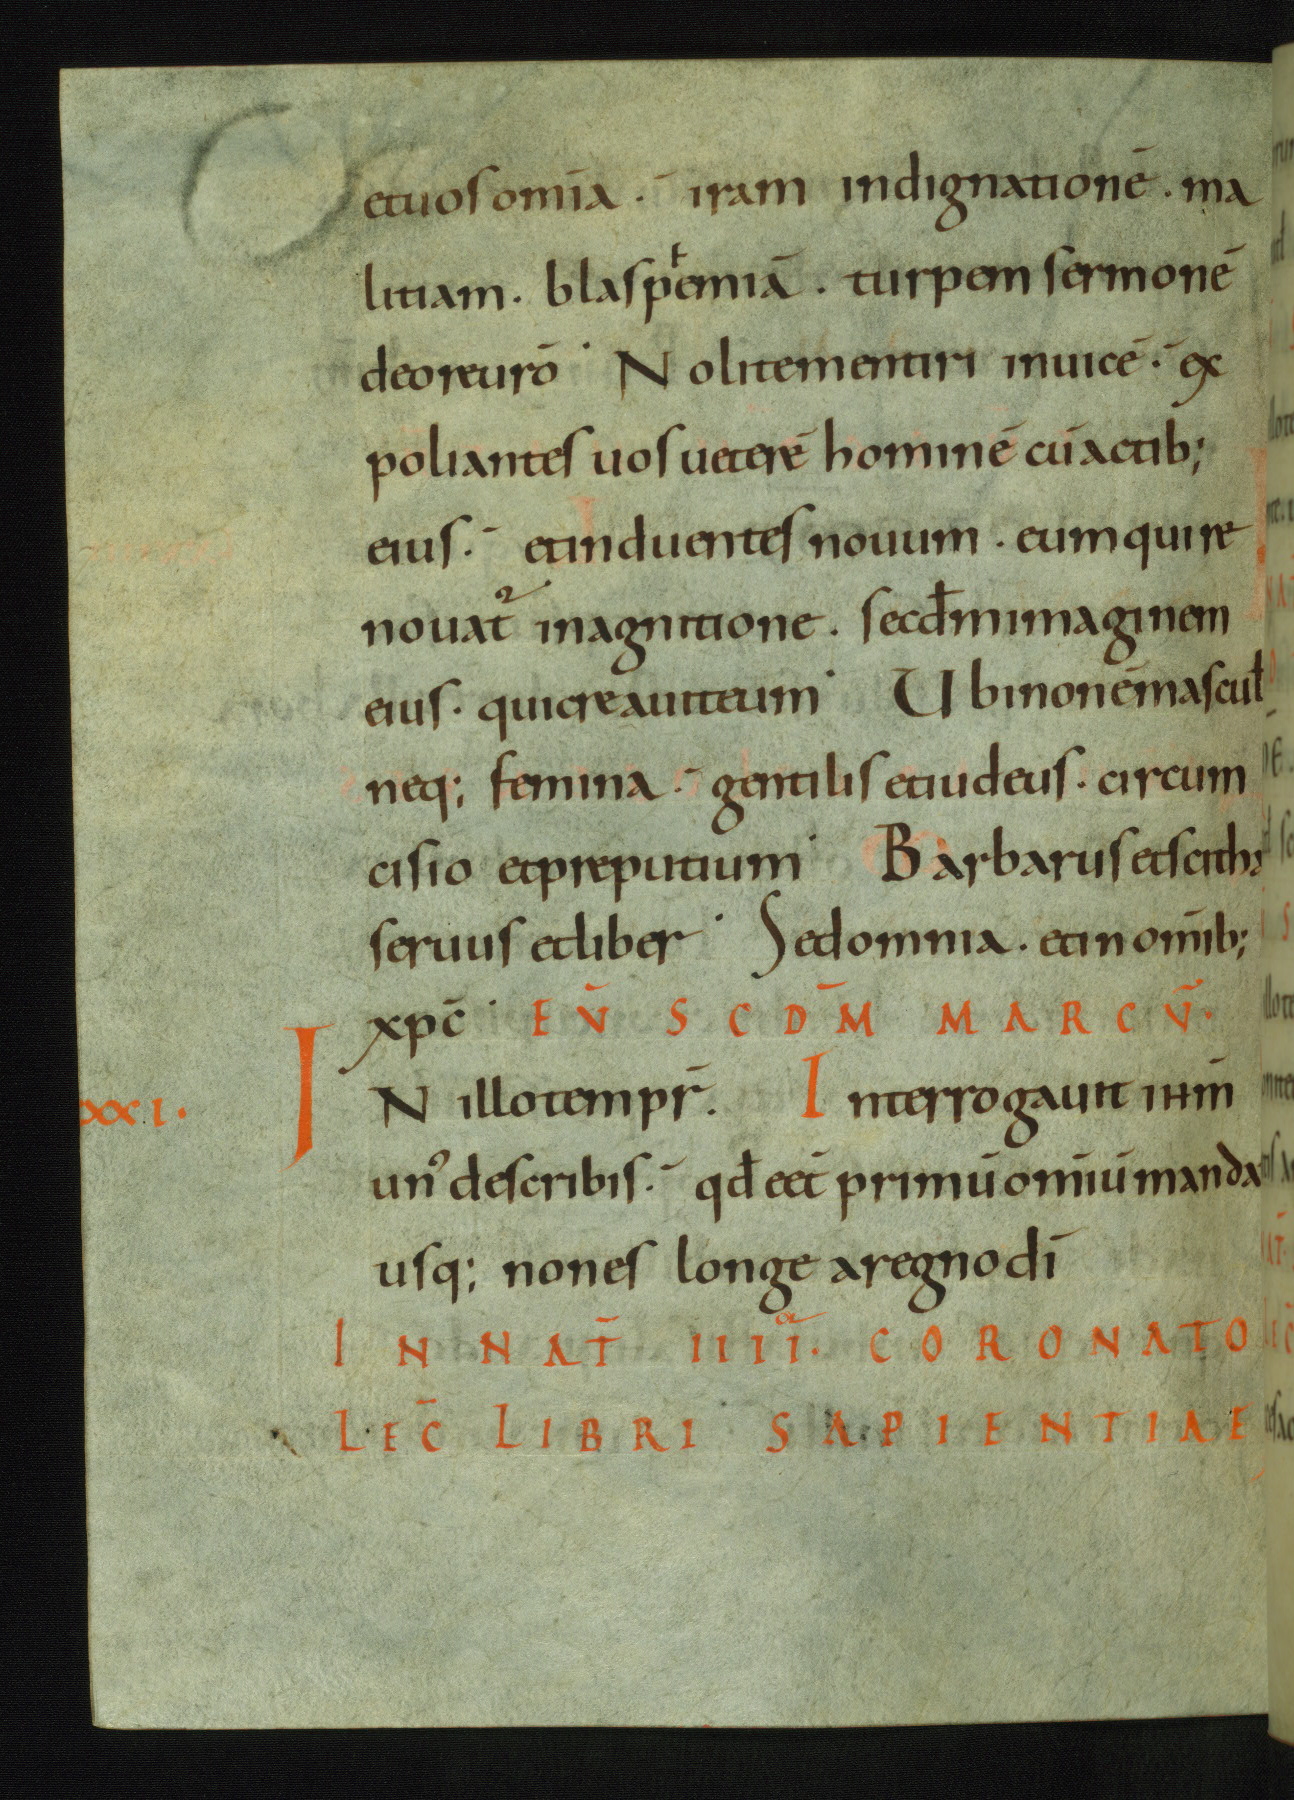 et uos omīa · iram indignationē · ma
litiam · blaspᵗemiā · turpem sermonē
de ore urō · Nolite mentiri inuicē · ex
poliantes uos ueterē hominē cū actib;
eius · et induentes nouum · eum qui re
nouat̄ in agnitione · secd̄m imaginem
eius · qui creauit eum · Ubi non ē mascul
neq; femina · gentilis et iudeus · circum
cisio et preputium · Barbarus et scitha
seruus et liber · Sed omnia · et in om̄ib;
xpc̄ · EṼ SCDM̄ MARCṼ·
XXI· IN illo tempr̄· Interrogauit ihm̄
unꝰ de scribis · qd̄ eēt primū omīū manda
usq; non es longe a regno dī
IN NAT̄ IIIIᵒʳ· CORONATO
LEC̄ LIBRI SAPIENTIAE